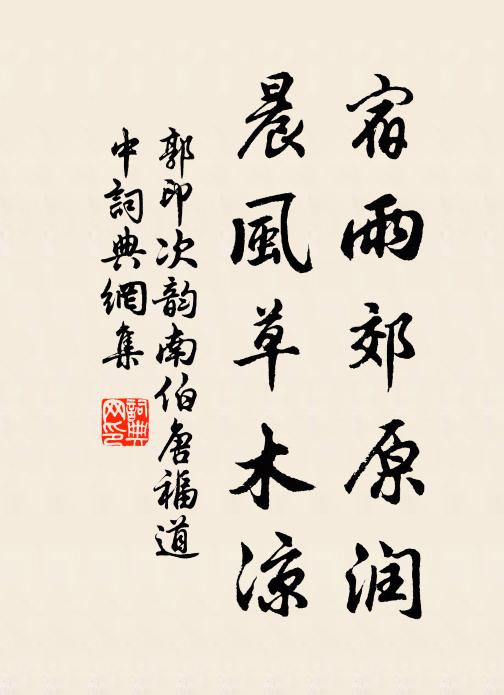 宿雨郊原润
晨風草木涼
郭印次韵南伯唐福道
中詞典網集
詞典网印